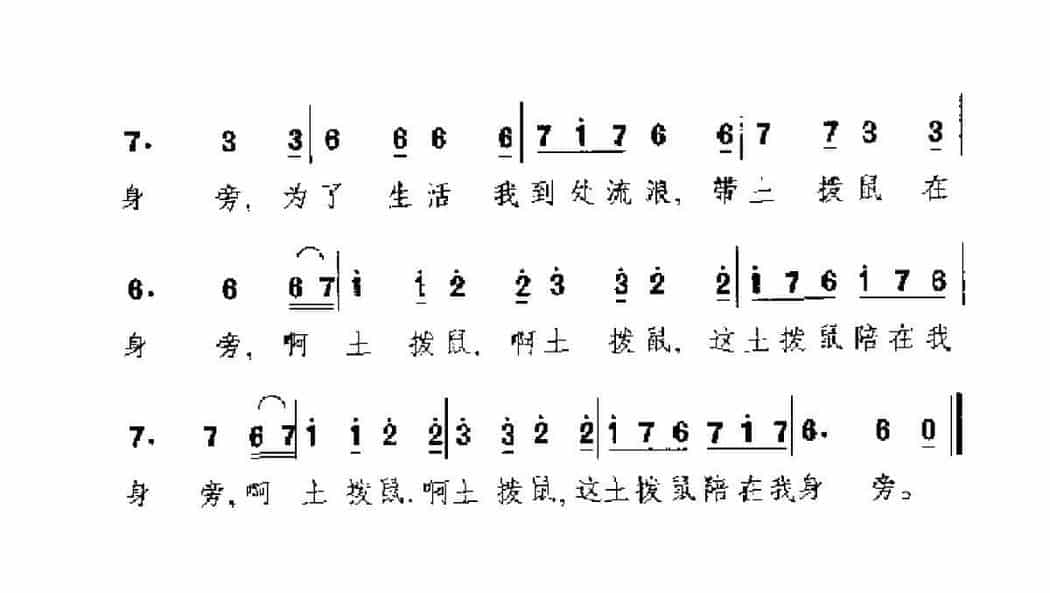 7. 3 3 | 6 6 6 6 | 7 i 7 6 6 | 7 7 3 3 |
身 旁, 为了 生活 我到处流浪, 带土 拨鼠 在
6. 6 6 7 | i i 2 2 3 3 2 2 | i 7 6 i 7 6 |
身 旁, 啊 土 拨鼠, 啊土 拨鼠, 这土拨鼠陪在我
7. 7 6 7 | i i 2 2 | 3 3 2 2 | i 7 6 7 i 7 | 6. 6 0 ‖
身 旁, 啊 土 拨鼠. 啊土 拨鼠, 这土拨鼠陪在我身 旁。